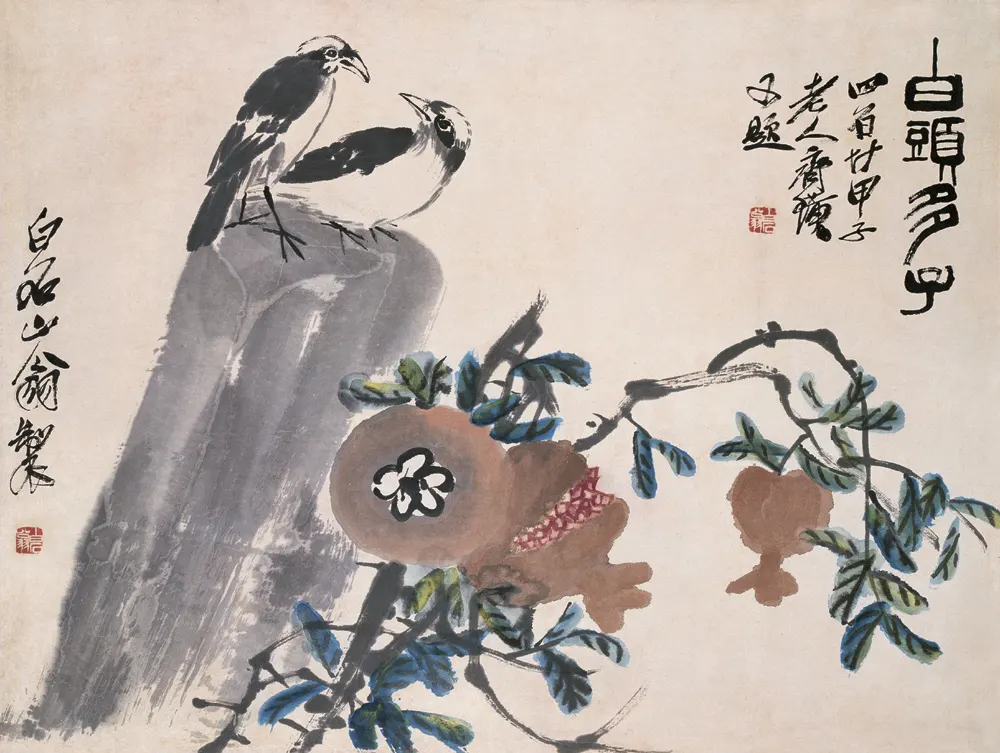 白頭多子
四百廿甲子
老人齊璜
又題
白石山翁製